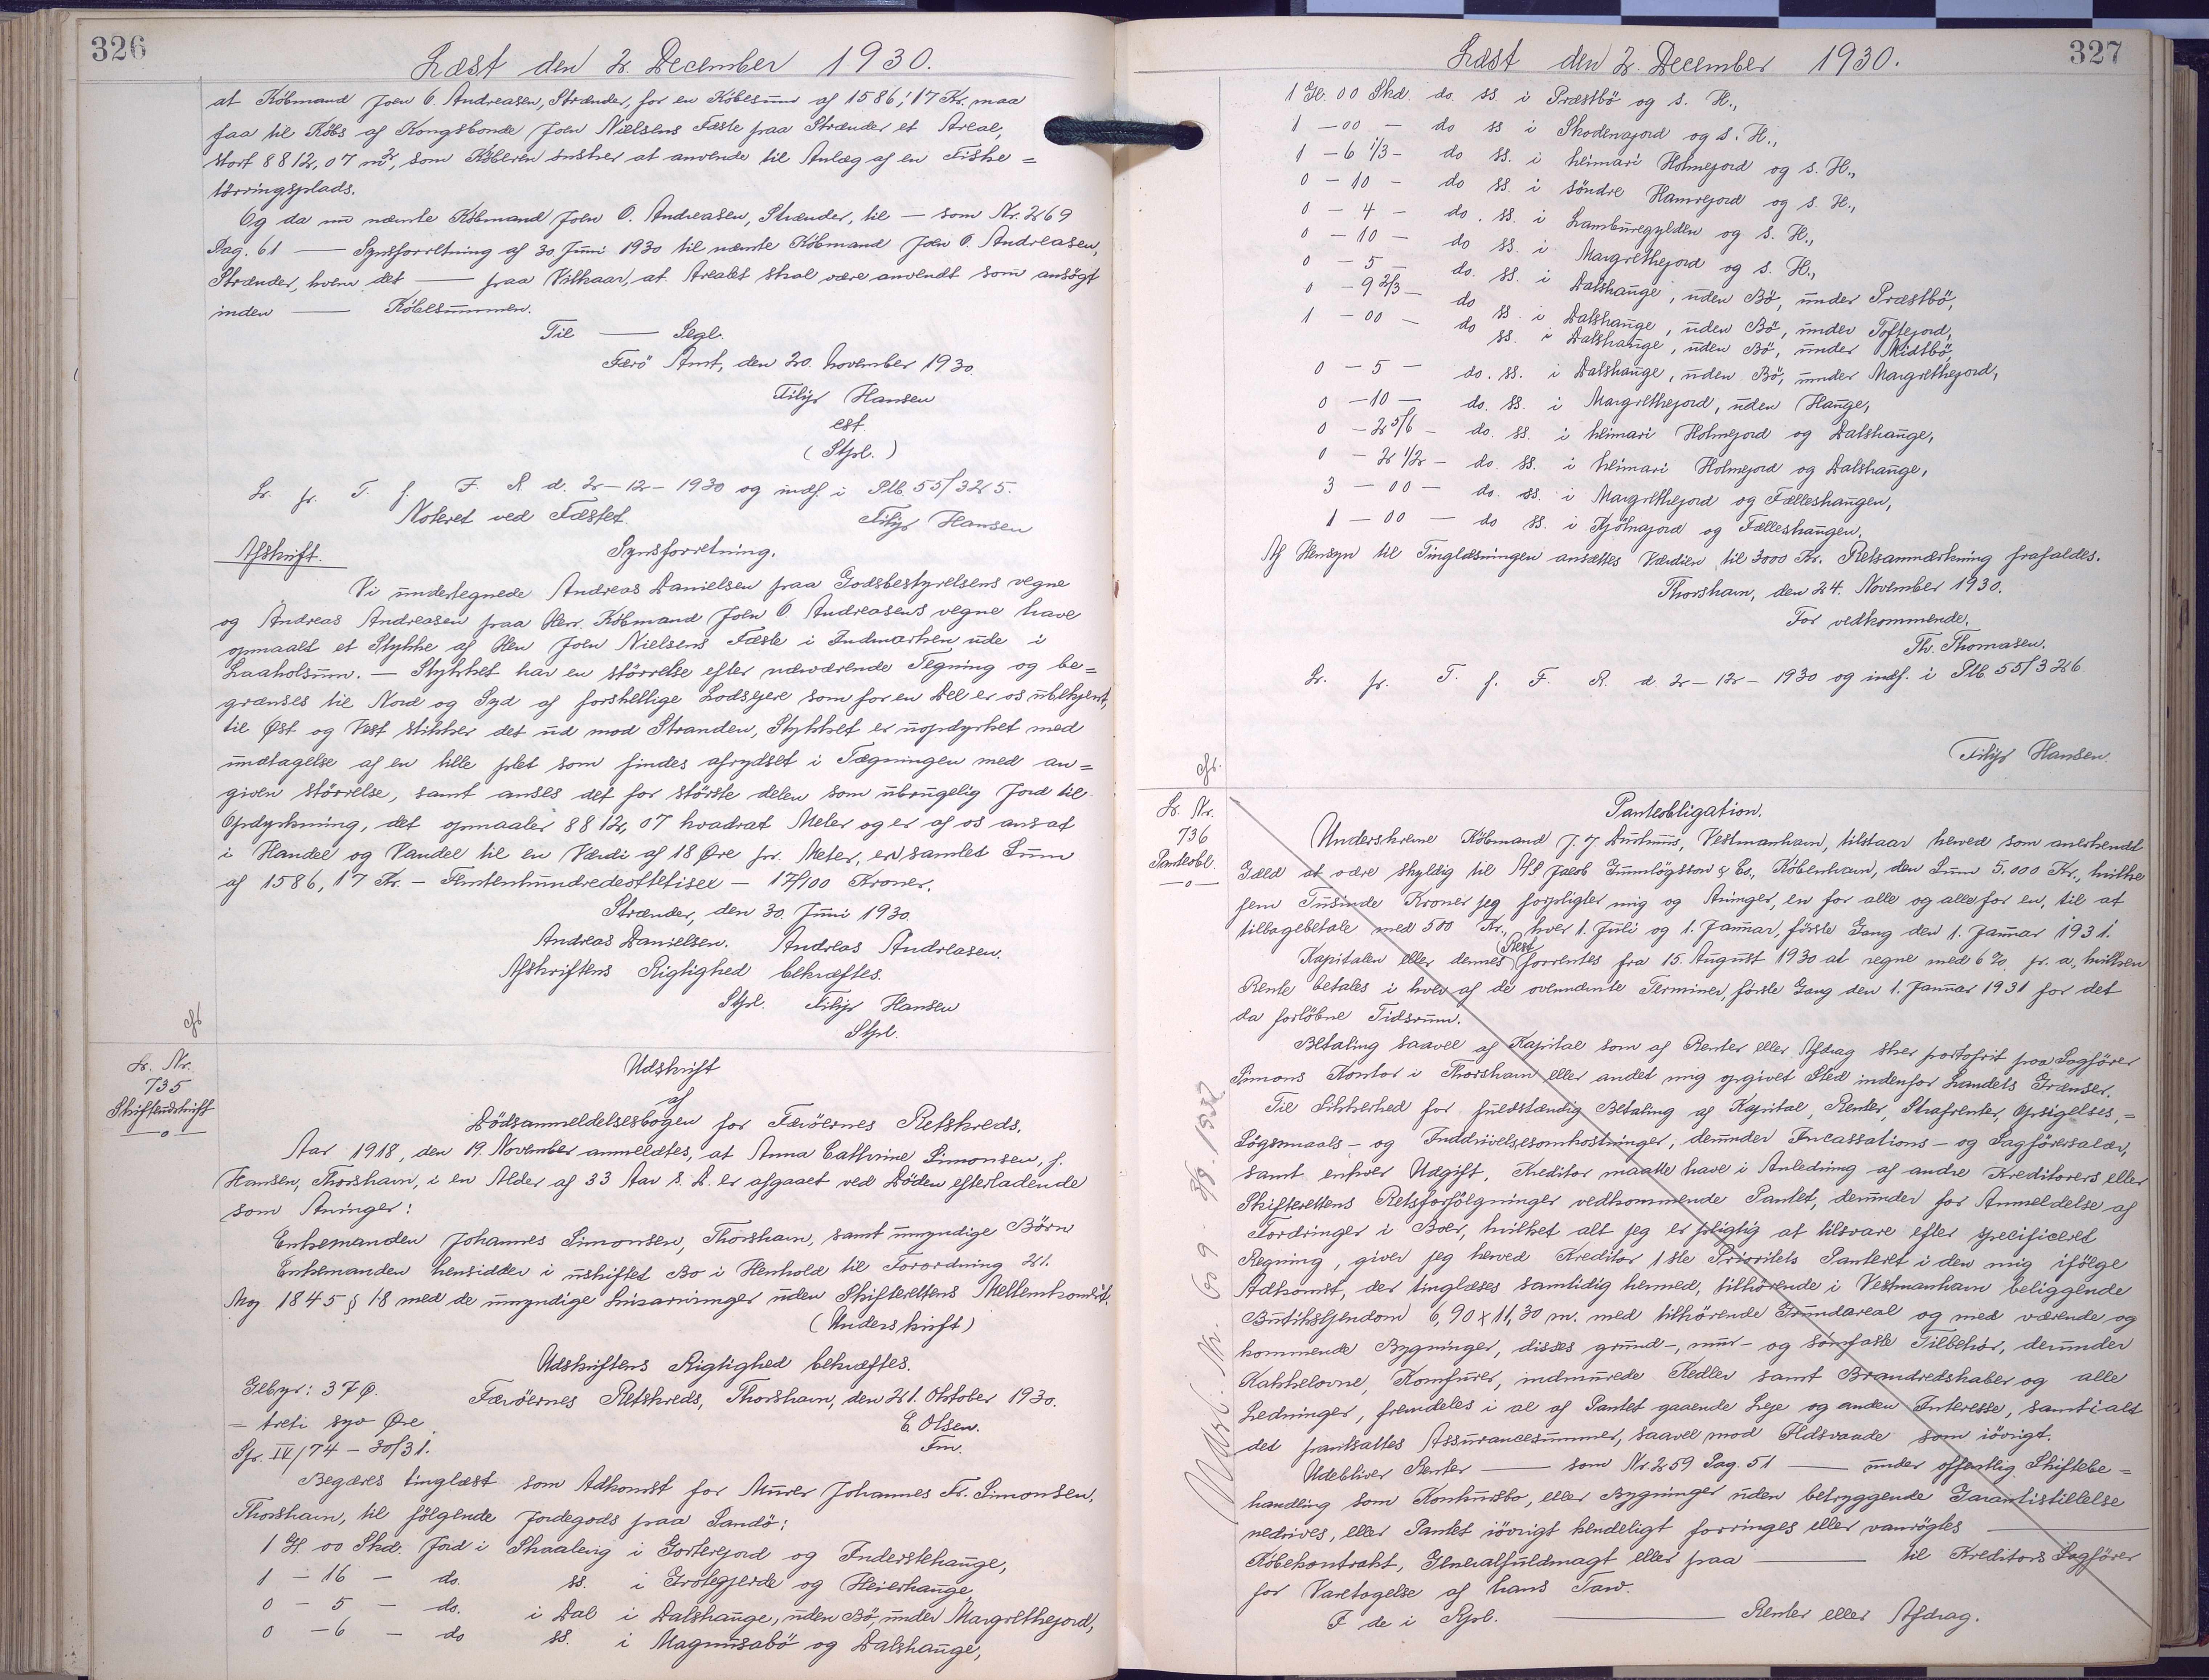 326
Læst den 2. December 1930.
at Købmand Joen O. Andreasen, Strænder, for en Købesum af 1586,17 Kr. maa
faa til Købs af Kongsbonde Joen Nielsens Fæste paa Strænder et Areal,
stort 8812,07 m², som Køberen ønsker at anvende til Anlæg af en Fiske=
tørringsplads.
Og da nu nævnte Købmand Joen O. Andreasen, Strænder, til — som Nr. 269
Pag. 61 — Synsforretning af 30. Juni 1930 til nævnte Købmand Joen O. Andreasen,
Strænder, hvem det — paa Vilkaar, at Arealet skal være anvendt som ansøgt
inden — Købesummen.
Til — Segl.
Færö Amt, den 20. November 1930.
Filip Hansen
cst.
(Stpl.)
Lr. pr. T. f. F. R. d. 2-12-1930 og indf i Plb. 55/325.
Noteret ved Fæstet. Filip Hansen
Afskrift. Synsforretning.
Vi undertegnede Andreas Danielsen paa Godsbestyrelsens vegne
og Andreas Andreasen paa Herr. Købmand Joen O. Andreasens vegne have
opmaalt et Stykke af Hen Joen Nielsens Fæste i Indmarken ude i
Laaholsum. — Stykket har en størrelse efter nærværende Tegning og be=
grænses til Nord og Syd af forskellige Lodsejere som for en Del er os ubekjent,
til Øst og Vest stikker det ud mod Stranden, Stykket er uopdyrket med
undtagelse af en lille plet som findes afrydset i Tægningen med an=
given størrelse, samt anses det for største delen som ubrugelig Jord til
Opdyrkning, det opmaaler 8812,07 kvadrat Meter og er af os ansat
i Handel og Vandel til en Værdi af 18 Øre pr. Meter, en samlet Sum
af 1586,17 Kr. — Femtenhundredeottetisex — 17/100 Kroner.
Strænder, den 30. Juni 1930.
Andreas Danielsen. Andreas Andreasen.
Afskriftens Rigtighed bekræftes.
Stpl. Filip Hansen
Stpl.
Lr. Nr.
735
Skifteudskrift
—o—
Udskrift
af
Dödsanmeldelsesbogen for Færöernes Retskreds.
Aar 1918, den 19. November anmeldtes, at Anna Cathrine Simonsen, f.
Hansen, Thorshavn, i en Alder af 33 Aar s. D. er afgaaet ved Döden efterladende
som Arvinger:
Enkemanden Johannes Simonsen, Thorshavn, samt umyndige Börn
Enkemanden hensidder i uskiftet Bo i Henhold til Forordning 21.
Maj 1845 § 18 med de umyndige Livsarvinger uden Skifterettens Mellemkomst.
(Underskrift)
Udskriftens Rigtighed bekræftes.
Gebyr: 37 Ø. Færöernes Retskreds, Thorshavn, den 21. Oktober 1930.
= treti syv Øre E. Olsen.
Spr. IV/74 - 30/31. Fm.
Begæres tinglæst som Adkomst for Murer Johannes Fr. Simonsen,
Thorshavn, til følgende Jordegods paa Sandö:
1 Gl. 00 Skd. Jord i Skaaleng i Gorterjord og Inderstehauge,
1 - 16 - do. ss. i Grotegjerde og Heierhauge
0 - 5 - do. i Dal i Dalshauge, uden Bö, under Margrethejord,
0 - 6 - do ss. i Magnusabö og Dalshauge,
327
Læst den 2. December 1930.
1 Gl. 00 Skd. do. ss. i Præstbö og s. H.,
1 - 00 - do ss i Skodenajord og s. H.,
1 - 6 1/3 - do ss. i heimari Holmejord og s. H.,
0 - 10 - do ss. i söndre Hamrejord og s. H.,
0 - 4 - do. ss. i Lamburegylden og s. H.,
0 - 10 - do ss. i Margrethejord og s. H.,
0 - 5 - do. ss. i Dalshauge, uden Bö, under Præstbö,
0 - 9 2/3 - do ss. i Dalshauge, uden Bö, under Toftejord,
1 - 00 - do ss. i Dalshauge, uden Bö, under Midtbö,
0 - 5 - do. ss. i Dalshauge, uden Bö, under Margrethejord,
0 - 10 - do. ss. i Margrethejord, uden Hauge,
0 - 2 5/6 - do. ss. i heimari Holmejord og Dalshauge,
0 - 2 1/2 - do. ss. i heimari Holmejord og Dalshauge,
3 - 00 - do. ss. i Margrethejord og Fælleshaugen,
1 - 00 - do ss. i Kjölnajord og Fælleshaugen.
Af Hensyn til Tinglæsningen ansættes Værdien til 3000 Kr. Retsanmærkning frafaldes.
Thorshavn, den 24. November 1930.
For vedkommende.
Th. Thomasen.
Lr. pr. T. f. F. R. d 2-12-1930 og indf. i Plb. 55/326.
Filip Hansen.
Lr. Nr.
736
Panteobl.
—o—
Panteobligation.
Underskrevne Købmand J. J. Durhuus, Vestmanhavn, tilstaar herved som anerkendt
Gæld at være skyldig til A/S Jacob Gunnlögsson & Co., København, den Sum 5.000 Kr., hvilke
fem Tusinde Kroner jeg forpligter mig og Arvinger, en for alle og alle for en, til at
tilbagebetale med 500 Kr., hver 1. Juli og 1. Januar, første Gang den 1. Januar 1931.
Kapitalen eller dennes Rest forrentes fra 15. August 1930 at regne med 6 % pr. a., hvilken
Rente betales i hver af de ovennævnte Terminer, første Gang den 1. Januar 1931 for det
da forløbne Tidsrum.
Betaling saavel af Kapital som af Renter eller Afdrag sker portofrit paa Sagfører
Simons Kontor i Thorshavn eller andet mig opgivet Sted indenfor Landets Grænser.
Til Sikkerhed for fuldstændig Betaling af Kapital, Renter, Strafrenter, Opsigelses,=
Søgsmaals- og Inddrivelsesomkostninger, derunder Incassations- og Sagførersalær,
samt enhver Udgift, Kreditor maatte have i Anledning af andre Kreditorers eller
Skifterettens Retsforfølgninger vedkommende Pantet, derunder for Anmeldelse af
Fordringer i Boer, hvilket alt jeg er pligtig at tilsvare efter specificeret
Regning, giver jeg herved Kreditor 1ste Prioritets Panteret i den mig ifølge
Adkomst, der tinglæses samtidig hermed, tilhørende i Vestmanhavn beliggende
Butiksejendom 6,90 x 11,30 m. med tilhørende Grundareal og med værende og
kommende Bygninger, disses grund-, mur- og sömfaste Tilbehör, derunder
Kakkelovne, Komfurer, indmurede Kedler samt Brandredskaber og alle
Ledninger, fremdeles i al af Pantet gaaende Leje og anden Interesse, samt i alt
det pantsattes Assurancesummer, saavel mod Ildsvaade som iövrigt.
Udebliver Renter — som Nr. 259 Pag. 51 — under offentlig Skiftebe=
handling som Konkursbo, eller Bygninger uden betryggende Garantistillelse
nedrives, eller Pantet iövrigt kendeligt forringes eller vanrøgtes —
Købekontrakt, Generalfuldmagt eller paa — til Kreditors Sagfører
for Varetagelse af hans Tarv.
F de i Rpl. — Renter eller Afdrag.